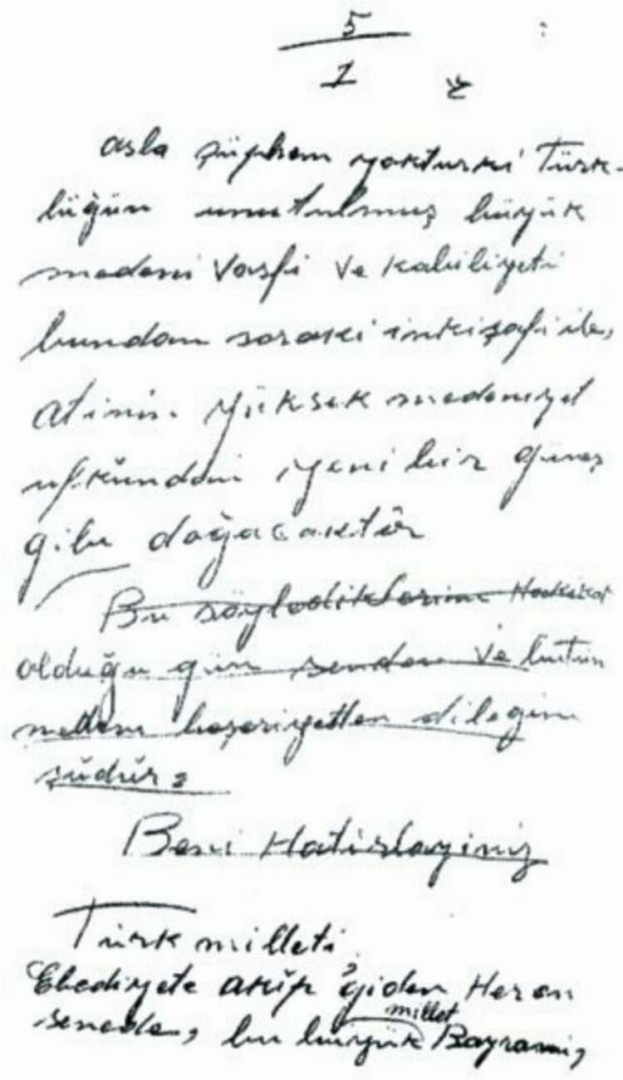 5
1
asla şüphem yoktur ki Türk-
lüğün unutulmuş büyük
medeni vasfı ve kabiliyeti
bundan sonraki inkişafı ile,
atinin yüksek medeniyet
ufkundan yeni bir güneş
gibi doğacaktır
Bu söylediklerim Hakikat
olduğu gün senden ve bütün
medeni beşeriyetten dileğim
şudur:
Beni Hatırlayınız
Türk milleti,
Ebediyete akıp giden Her on
senede, bu büyük millet Bayramı,